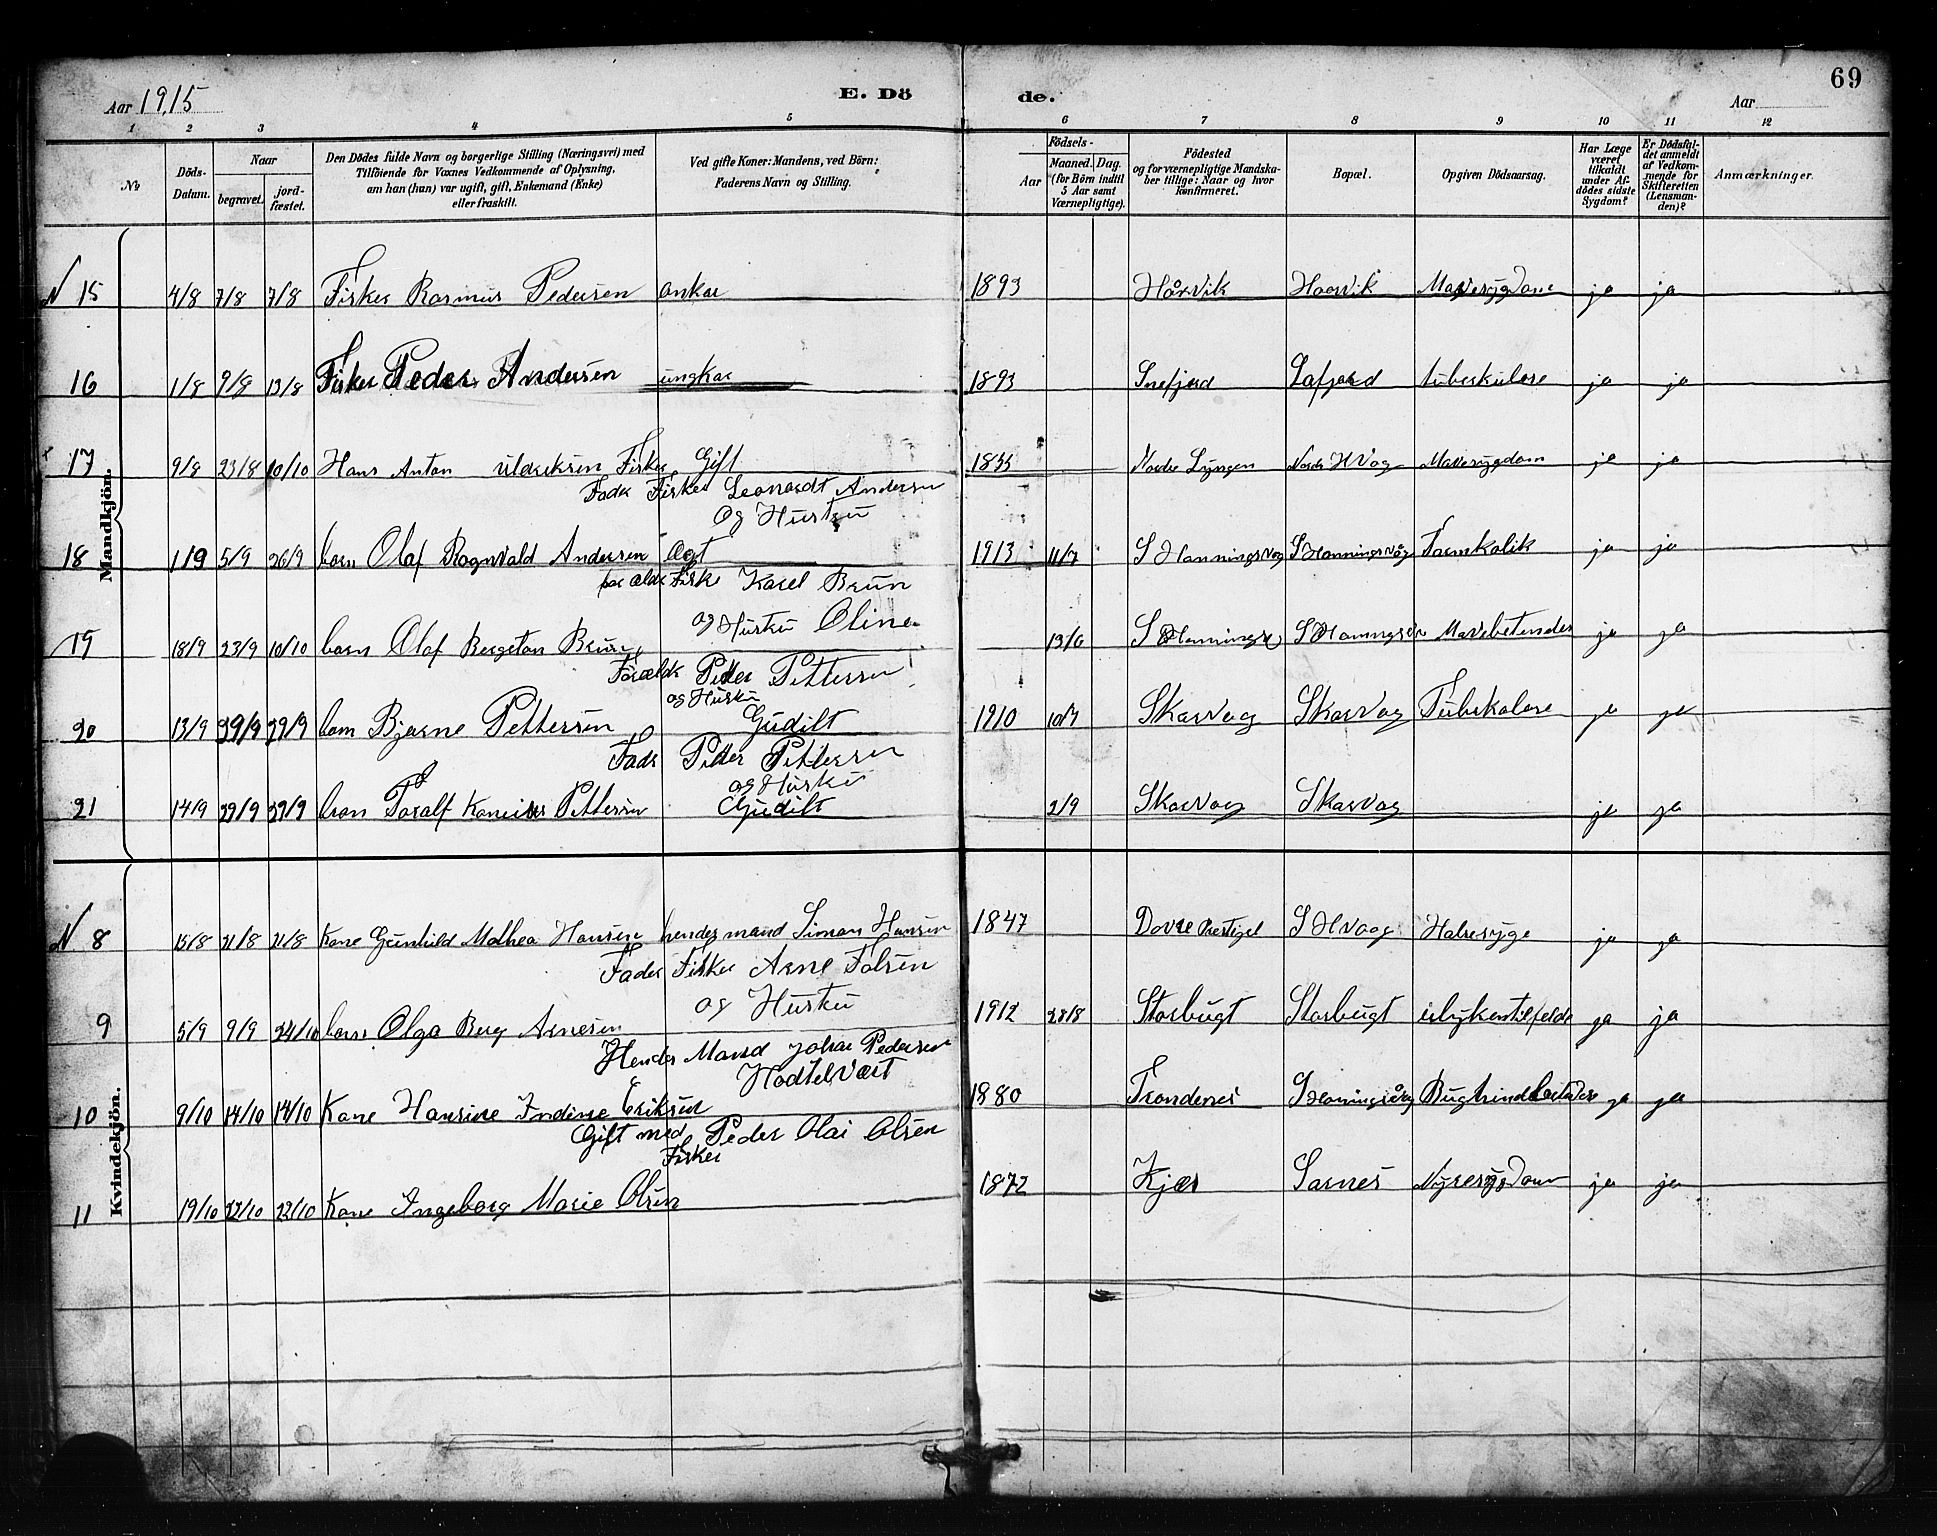 69
Aar 1915
E. Dö
de.
Aar
1 2 3 4 5 6 7 8 9 10 11 12
No
Döds-Datum.
Naar
begravet.
jord-fæstet.
Den Dödes fulde Navn og borgerlige Stilling (Næringsvei) med
Tilföiende for Voxnes Vedkommende af Oplysning,
om han (hun) var ugift, gift, Enkemand (Enke)
eller fraskilt.
Ved gifte Koner: Mandens, ved Börn:
Faderens Navn og Stilling.
Födsels-
Aar
Maaned. Dag.
(for Börn indtil
5 Aar samt
Værnepligtige).
Födested
og for værnepligtige Mandska-
ber tillige: Naar og hvor
konfirmeret.
Bopæl.
Opgiven Dödsaarsag.
Har Læge
været
tilkaldt
under Af-
dödes sidste
Sygdom?
Er Dödsfal-
det anmeldt
af Vedkom-
mende for
Skifteretten
(Lensman-
den)?
Anmærkninger.
Mandkjön.
N 15 4/8 7/8 7/8 Fisker Rasmus Pedersen 1893 ja ja
16 1/8 9/8 13/8 Fisker Peder Andersen ungkar 1893 Snefjord Lafjord tuberkulose ja ja
17 9/8 23/8 10/10 Hans Anton Uldriksen Fisker Gift Nordre Lyngen Mavesygdom ja ja
Fader Fisker Leonardt Andersen
og Hustru
18 1/9 5/9 26/9 barn Olaf Ragnvald Andersen 1913 11/7 S Honningsvog S Honningsvåg Tarmkolik ja ja
Fisker Karel Brun
og Hustru Oline
19 18/9 23/9 10/10 barn Olaf Bergeton Brun 13/6 ja ja
Forældr Peder Pettersen
og Hustru
20 13/9 29/9 29/9 barn Bjarne Pettersen Gudilt 1910 10/7 Skarvog Skarvog Tuberkolose ja ja
Fader Peder Pettersen
og Hustru
21 14/9 29/9 29/9 Toralf Pettersen Gudilt 2/9 Skarvog Skarvog ja ja
Kvindekjön.
N 8 15/8 21/8 21/8 Kone Gunhild Mathea Hansen hendes mand Simon Hansen 1847 Dovre S Hvaag Halsesyge ja ja
Fader Fisker Arne
og Hustru
9 5/9 9/9 24/10 barn Olga Berg Arnesen 1912 28/8 Storbugt Storbugt ja ja
Hendes Mand Johan Pedersen
10 9/10 14/10 14/10 Kone Hansine Indine Eriksen 1880 Trondenes ja ja
Gift med Peder Olai Olsen
Fisker
11 19/10 22/10 22/10 Kone Ingeborg Marie Olsen 1872 Kjær Sarnes Nyresygdom ja ja